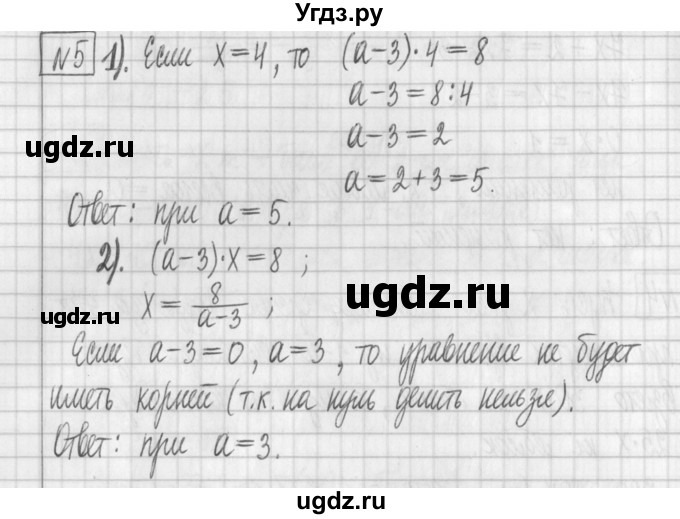 Угдз.ру
№5 1). Если x=4, то (a-3)·4=8
a-3=8:4
ugdz.ru ugdz.ru
a-3=2
a=2+3=5.
Ответ: при a=5.
2). (a-3)·x=8 ;
ugdz.ru
x= 8/(a-3) ;
ugdz.ru ugdz.ru
Если a-3=0, a=3, то уравнение не будет
иметь корней (т.к. на нуль делить нельзя).
ugdz.ru ugdz.ru
Ответ: при a=3.
ugdz.ru